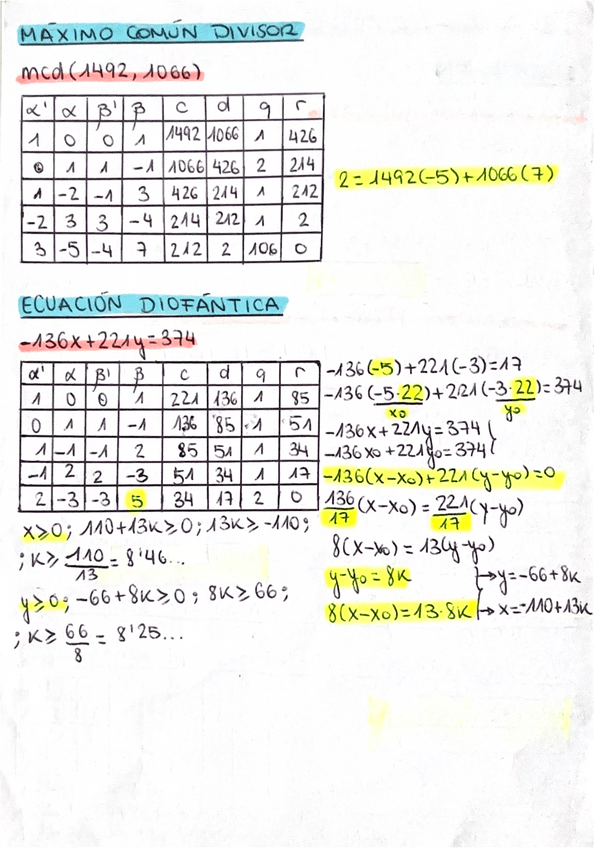 MÁXIMO COMÚN DIVISOR
mcd(1492, 1066)
α' α β' β c d q r
1 0 0 1 1492 1066 1 426
0 1 1 -1 1066 426 2 214
1 -2 -1 3 426 214 1 212
-2 3 3 -4 214 212 1 2
3 -5 -4 7 212 2 106 0
2=1492(-5)+1066(7)
ECUACIÓN DIOFÁNTICA
-136x+221y=374
α' α β' β c d q r
1 0 0 1 221 136 1 85
0 1 1 -1 136 85 1 51
1 -1 -1 2 85 51 1 34
-1 2 2 -3 51 34 1 17
2 -3 -3 5 34 17 2 0
x≥0; 110+13k≥0; 13k≥-110;
; k≥ 110/13 = 8'46...
y≥0; -66+8k≥0; 8k≥66;
; k≥ 66/8 = 8'25...
-136(-5)+221(-3)=17
-136(-5·22)+221(-3·22)=374
x0 y0
-136x+221y=374
-136x0+221y0=374
-136(x-x0)+221(y-y0)=0
136/17 (x-x0)= 221/17 (y-y0)
8(x-x0)=13(y-y0)
y-y0=8k → y=-66+8k
8(x-x0)=13·8k → x=-110+13k